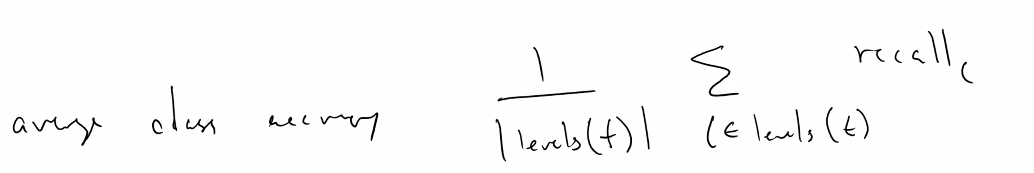 average class accuracy 1/|levels(t)| Σ_{c ∈ levels(t)} recall_c